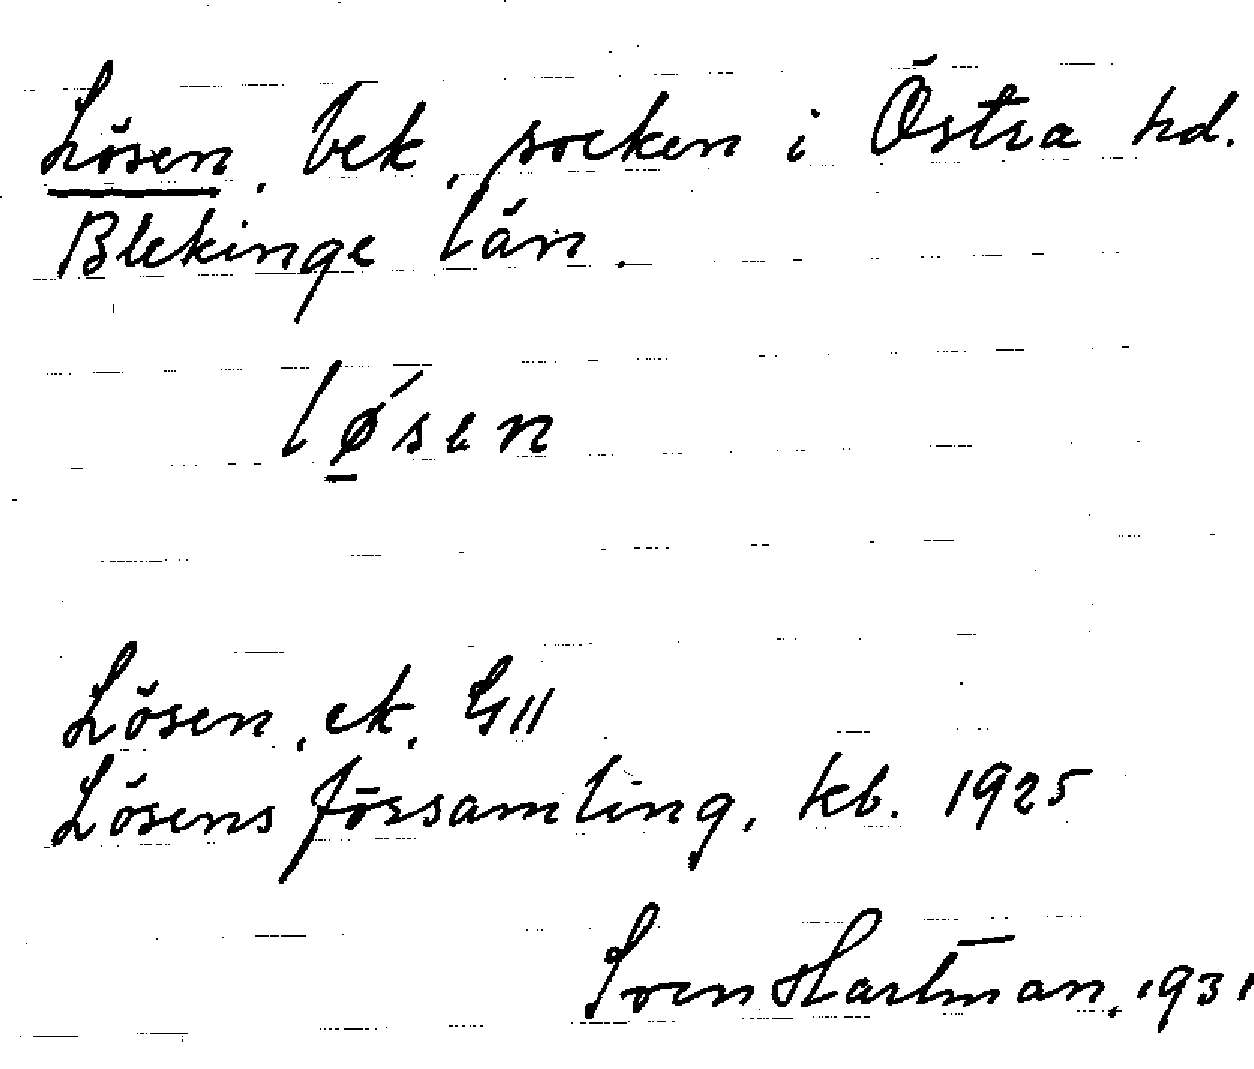 Lösen, bek, socken i Östra hd.
Blekinge län.
lǿsen
Lösen, ek. G11
Lösens församling, kb. 1925
Sven Hartman, 1931